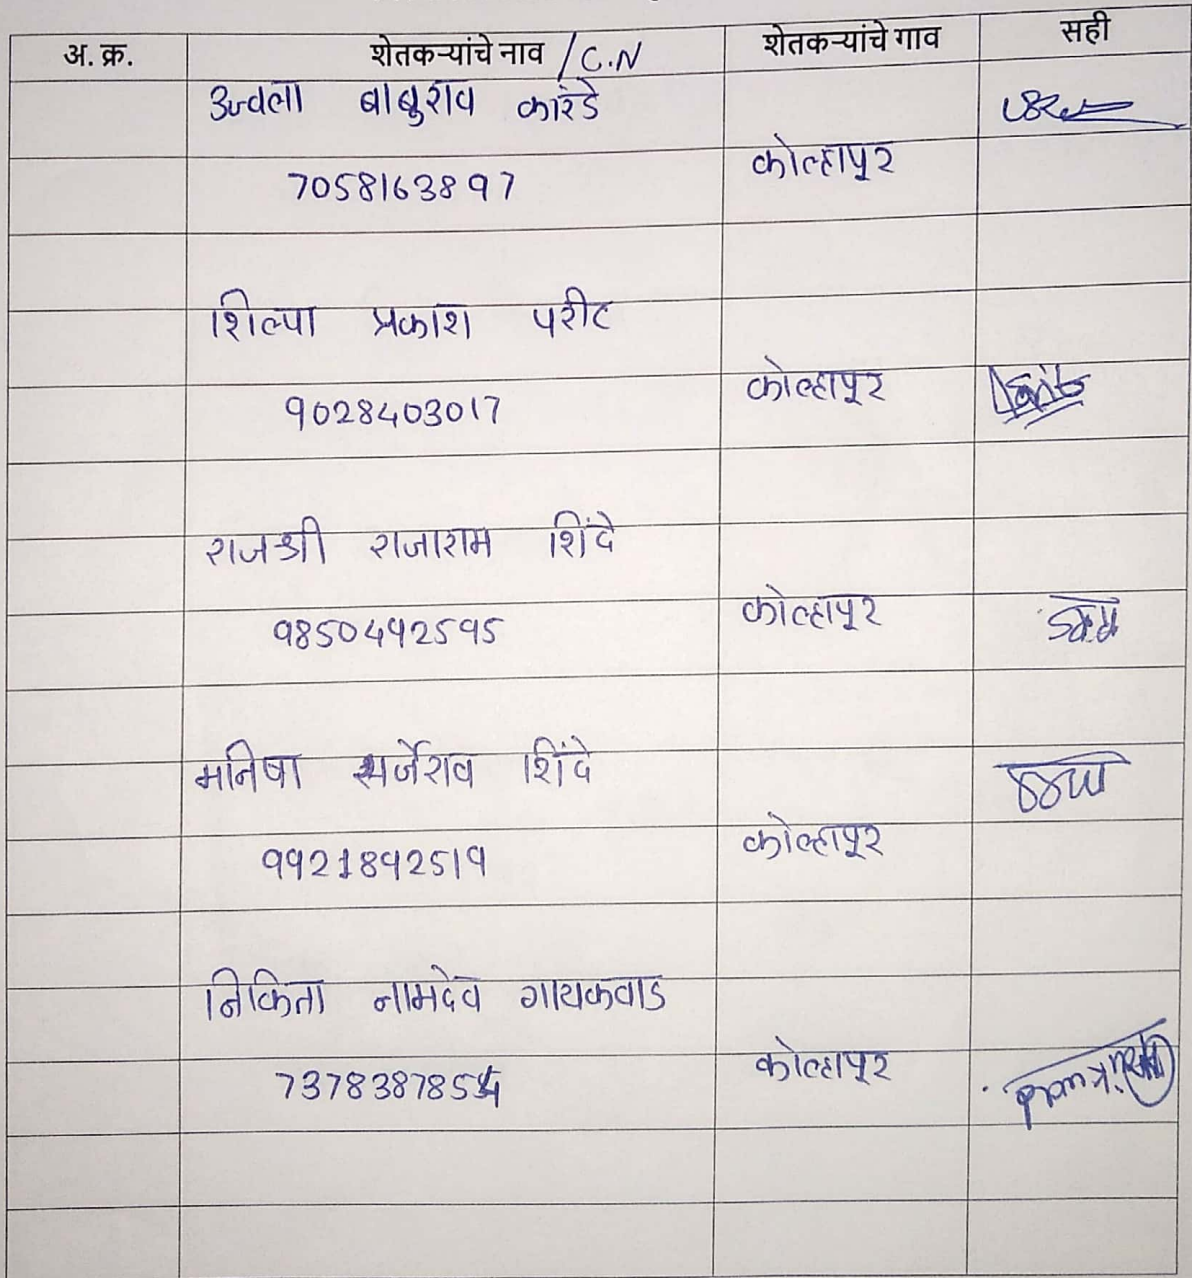 अ. क्र. शेतकऱ्यांचे नाव /C.N शेतकऱ्यांचे गाव सही
उज्वला बाबुराव कारंडे
7058163897 कोल्हापूर
शिल्पा प्रकाश परीट
9028403017 कोल्हापूर
राजश्री राजाराम शिंदे
9850492595 कोल्हापूर
मनिषा सर्जेराव शिंदे
9921892519 कोल्हापूर
निकिता नामदेव गायकवाड
कोल्हापूर